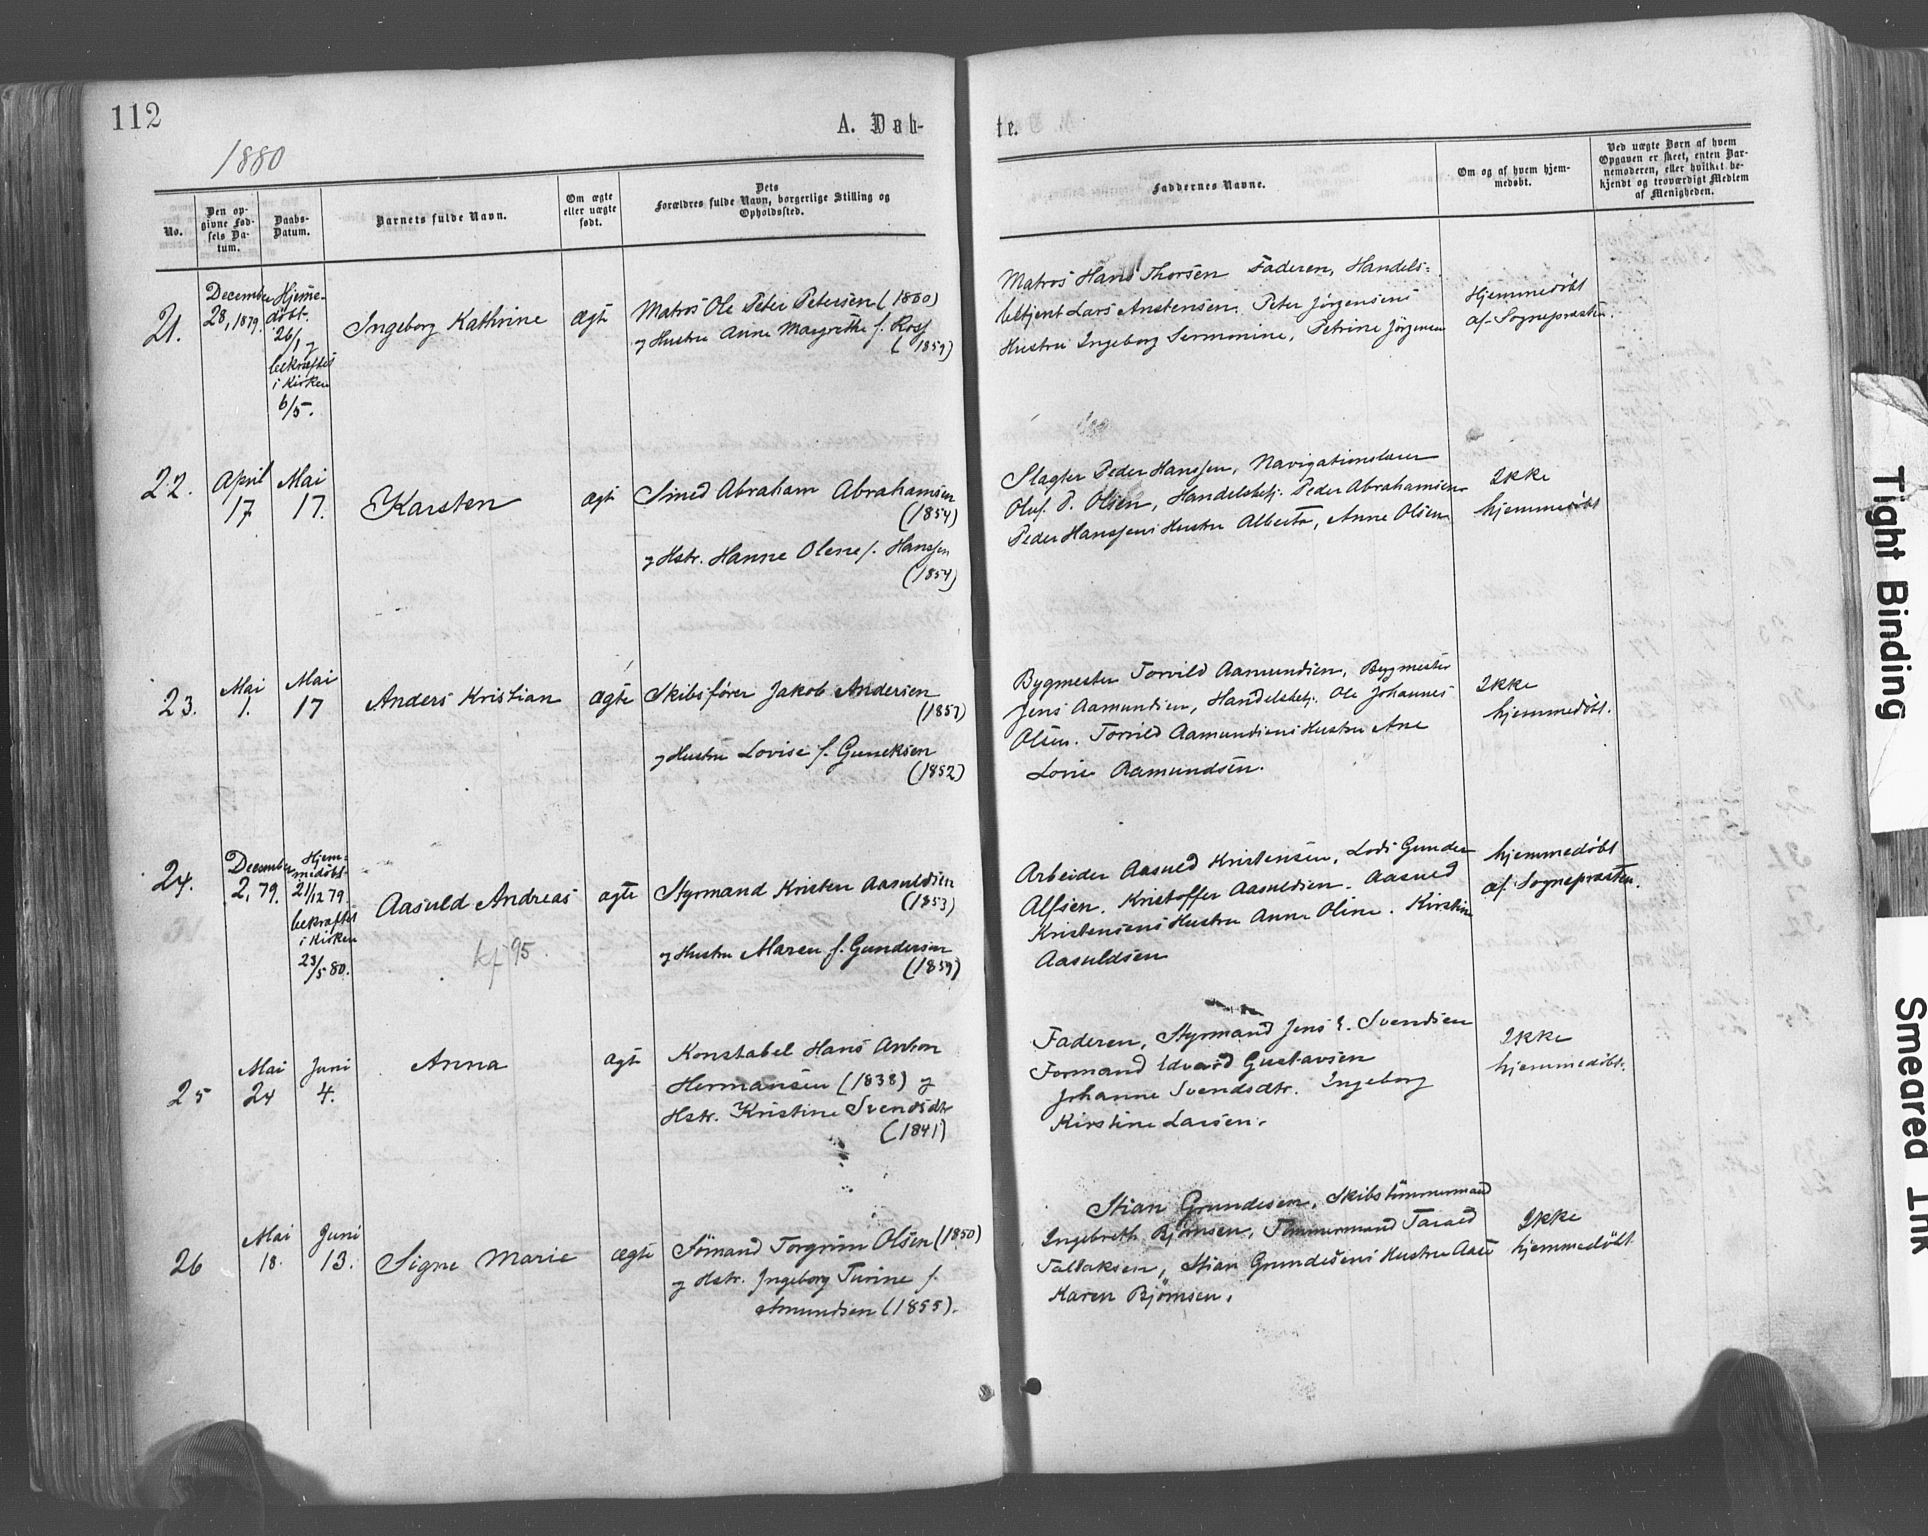 112
A. Døb-
te.
1880
No.
Den op-
givne Fød-
sels Da-
tum.
Daabs-
Datum.
Barnets fulde Navn.
Om ægte
eller uægte
født.
Dets
Forældres fulde Navn, borgerlige Stilling og
Opholdssted.
Faddernes Navne.
Om og af hvem hjem-
medøbt.
Ved uægte Børn af hvem
Opgaven er skeet, enten Bar-
nemoderen, eller hvilket be-
kjendt og troværdigt Medlem
af Menigheden.
21.
December
28, 1879.
Hjemme-
døbt
26/1 og
bekræftet
i Kirken
6/5.
Ingeborg Kathrine
ægte
Matros Ole Peter Petersen (1860)
og Hustru Anne Margrethe f. Ross
(1859)
Matros Hans Thorsen Faderen, Handels-
betjent Lars Anstensen. Peter Jørgensens
Hustru Ingeborg Sermonine, Petrine Jörgensen
Hjemmedøbt
af Sognepræsten.
22.
April
17
Mai
17.
Karsten
ægte
Smed Abraham Abrahamsen
(1854)
og Hstr. Hanne Olene f. Hanssen
(1854)
Slagter Peder Hanssen, Navigationslærer
Oluf. P. Olsen, Handelsbetj. Peder Abrahamsen
Peder Hanssens Hustru Alberta, Anne Olsen
Ikke
hjemmedøbt
23.
Mai
1.
Mai
17
Anders Kristian
Ægte
Skibsfører Jakob Andersen
(1857)
og Hustru Lovise f. Gundersen
(1852)
Bygmester Torvild Aamundsen, Bygmester
Jens Aamundsen, Handelsbetj. Ole Johannes
Olsen. Torvild Aamundsens Hustru Ane
Lovise Aamundsen.
Ikke
hjemmedøbt.
24.
December
2, 79.
Hjem-
medøbt
21/12 79
bekræftet
i Kirken
23/5 80.
Aasuld Andreas
kf 95.
ægte
Styrmand Kristen Aasuldsen
(1853)
og Hustru Maren f. Gundersen
(1859)
Arbeider Aasuld Kristensen, Lods Gunder
Alfsen. Kristoffer Aasuldsen. Aasuld
Kristensens Hustru Anne Oline. Kirstine
Aasuldsen
hjemmedøbt
af Sognepræsten.
25
Mai
24
Juni
4.
Anna
ægte
Konstabel Hans Anton
Hermansen (1838) og
Hstr. Kristine Svendsdtr
(1841)
Faderen, Styrmand Jens E. Svendsen
Formand Edvard Gustavsen
Johanne Svendsdtr. Ingeborg
Kirstine Larsen.
Ikke
hjemmedøbt.
26
Mai
18.
Juni
13.
Signe Marie
ægte
Sömand Torgrim Olsen (1850)
og Hstr. Ingeborg Turine f.
Amundsen (1855).
Stian Grundesen, Skibstømmermand
Ingebreth Bjørnsen, Tømmermand Tarald
Tallaksen, Stian Grundesens Hustru Aase
Karen Bjørnsen.
Ikke
hjemmedøbt
Tight Binding
Smeared Ink